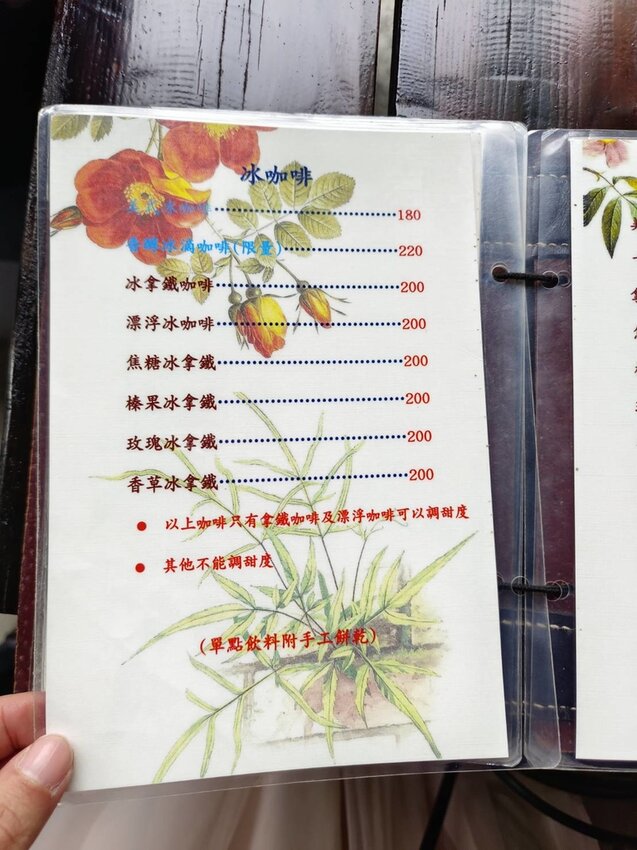 冰咖啡
美式冰咖啡 180
冰滴咖啡(限量) 220
冰拿鐵咖啡 200
漂浮冰咖啡 200
焦糖冰拿鐵 200
榛果冰拿鐵 200
玫瑰冰拿鐵 200
香草冰拿鐵 200
● 以上咖啡只有拿鐵咖啡及漂浮咖啡可以調甜度
● 其他不能調甜度
(單點飲料附手工餅乾)